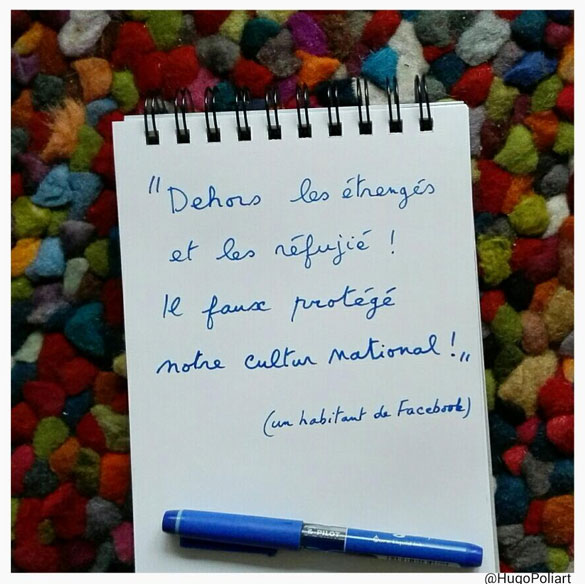 "Dehors les étrengés
et les réfujié !
Il faux protégé
notre cultur national !"
(un habitant de Facebook)
PILOT
@HugoPoliart